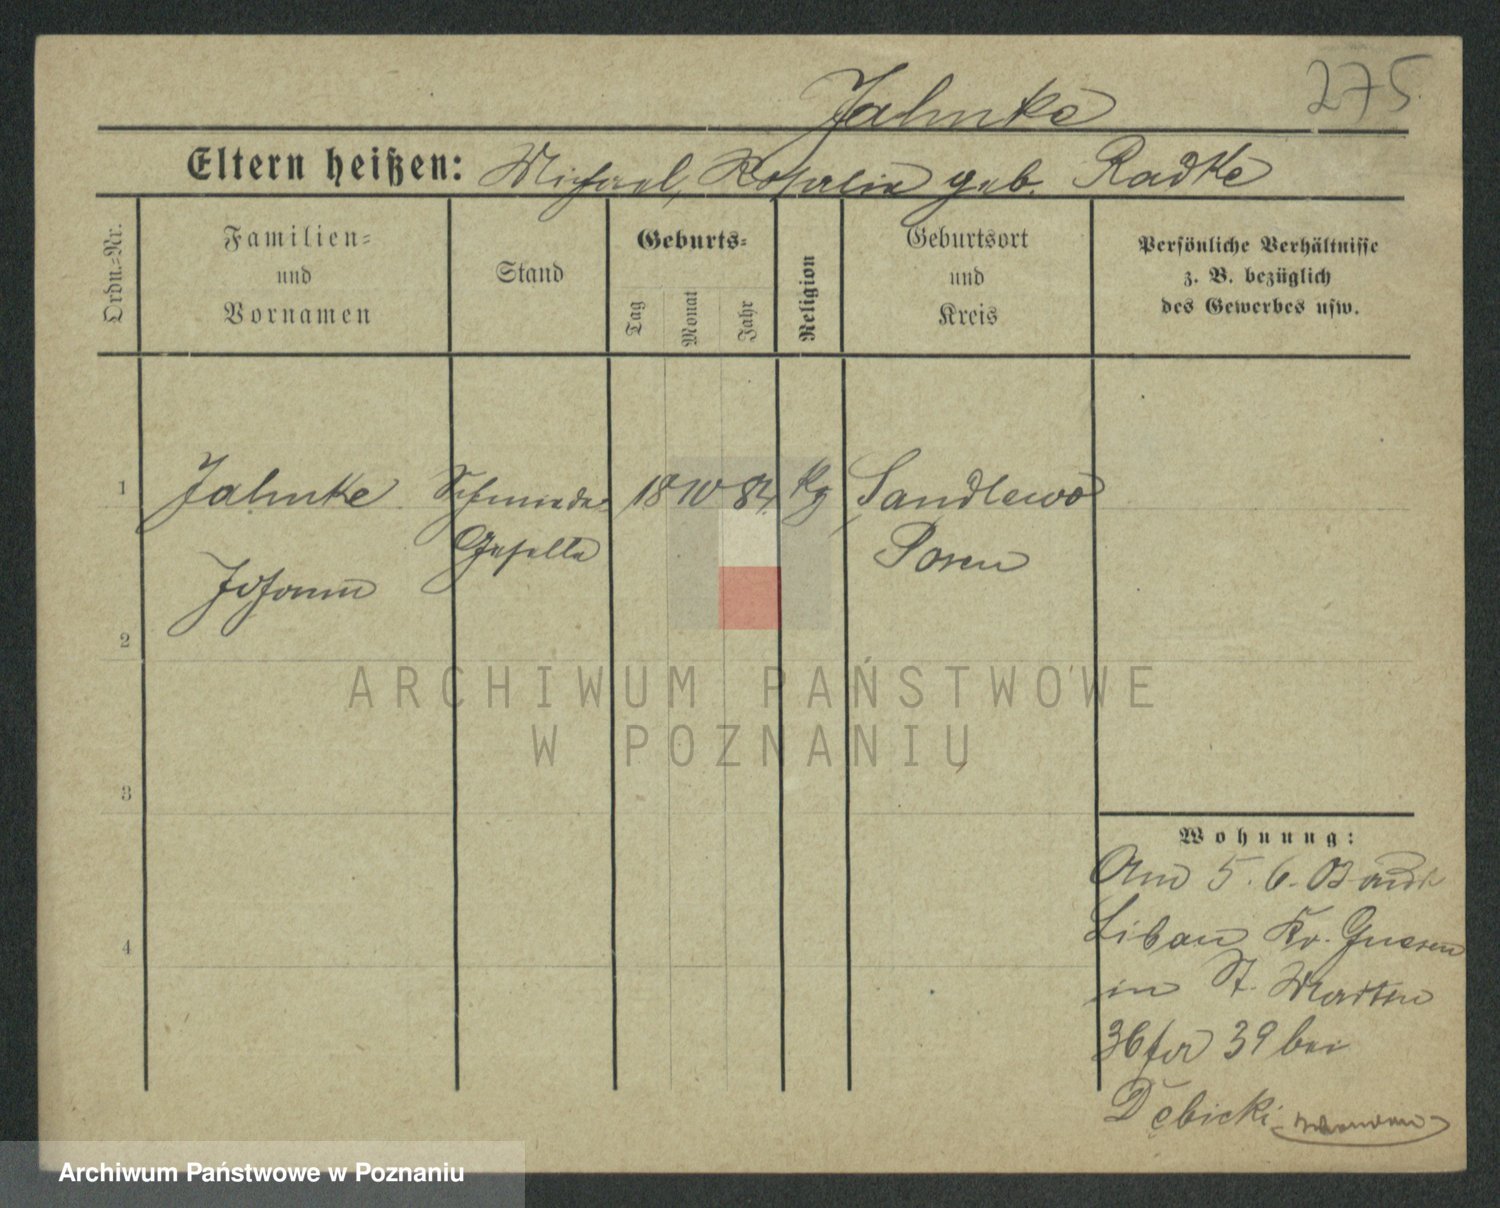 275
Jahnke
Eltern heißen: Michael, Rosalia geb. Radke
Ordn.=Nr.
Familien=
und
Vornamen
Stand
Geburts=
Tag
Monat
Jahr
Religion
Geburtsort
und
Kreis
Persönliche Verhältnisse
z. B. bezüglich
des Gewerbes usw.
1 Jahnke Schmiede= 18 10 84 kg Sandlewo
Geselle Posen
Johann
2
ARCHIWUM PAŃSTWOWE
W POZNANIU
3
4
Wohnung:
Am 5. 6.
Libau Kr. Gnesen
in St. Martin
36 fer 39 bei
Dębicki
Archiwum Państwowe w Poznaniu